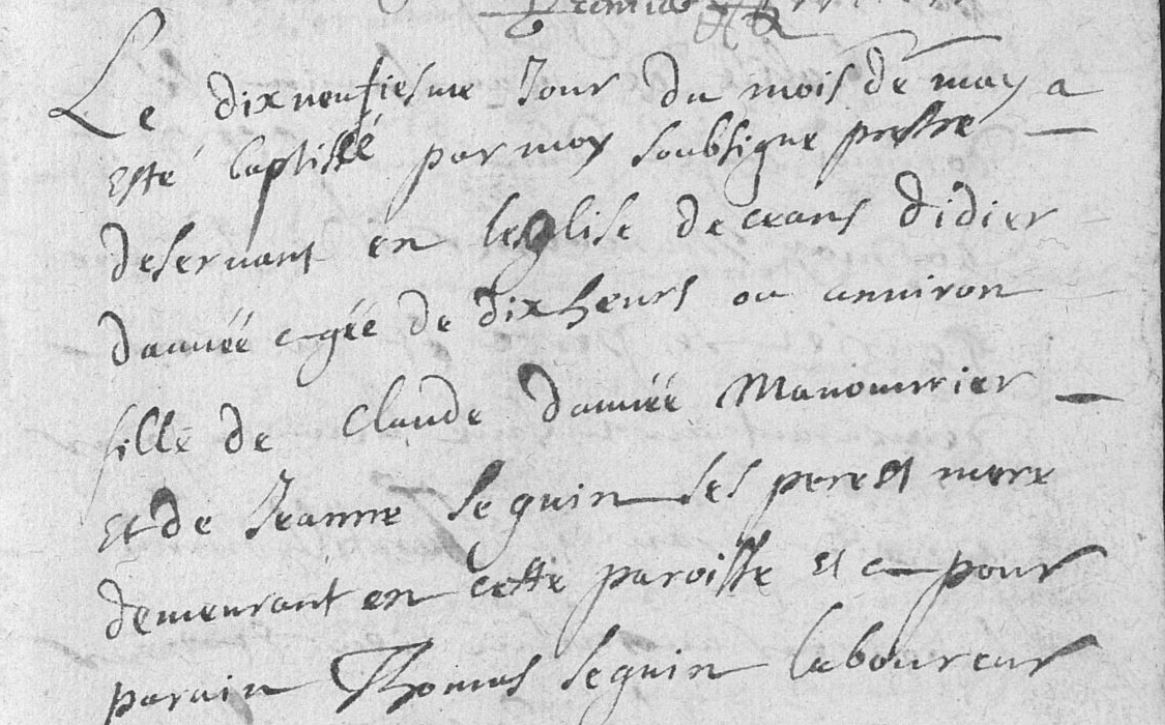 Le dixneufiesme Jour du mois de may a
esté baptissé par moy soubsigne prestre
deservant en leglise de ceans didier
damée agée de dix heurs ou anniron
fille de Claude damée Manouvrier
et de Jeanne Seguin ses pere et mere
demeurant en cette paroisse et a pour
parain Thomas Seguin laboureur